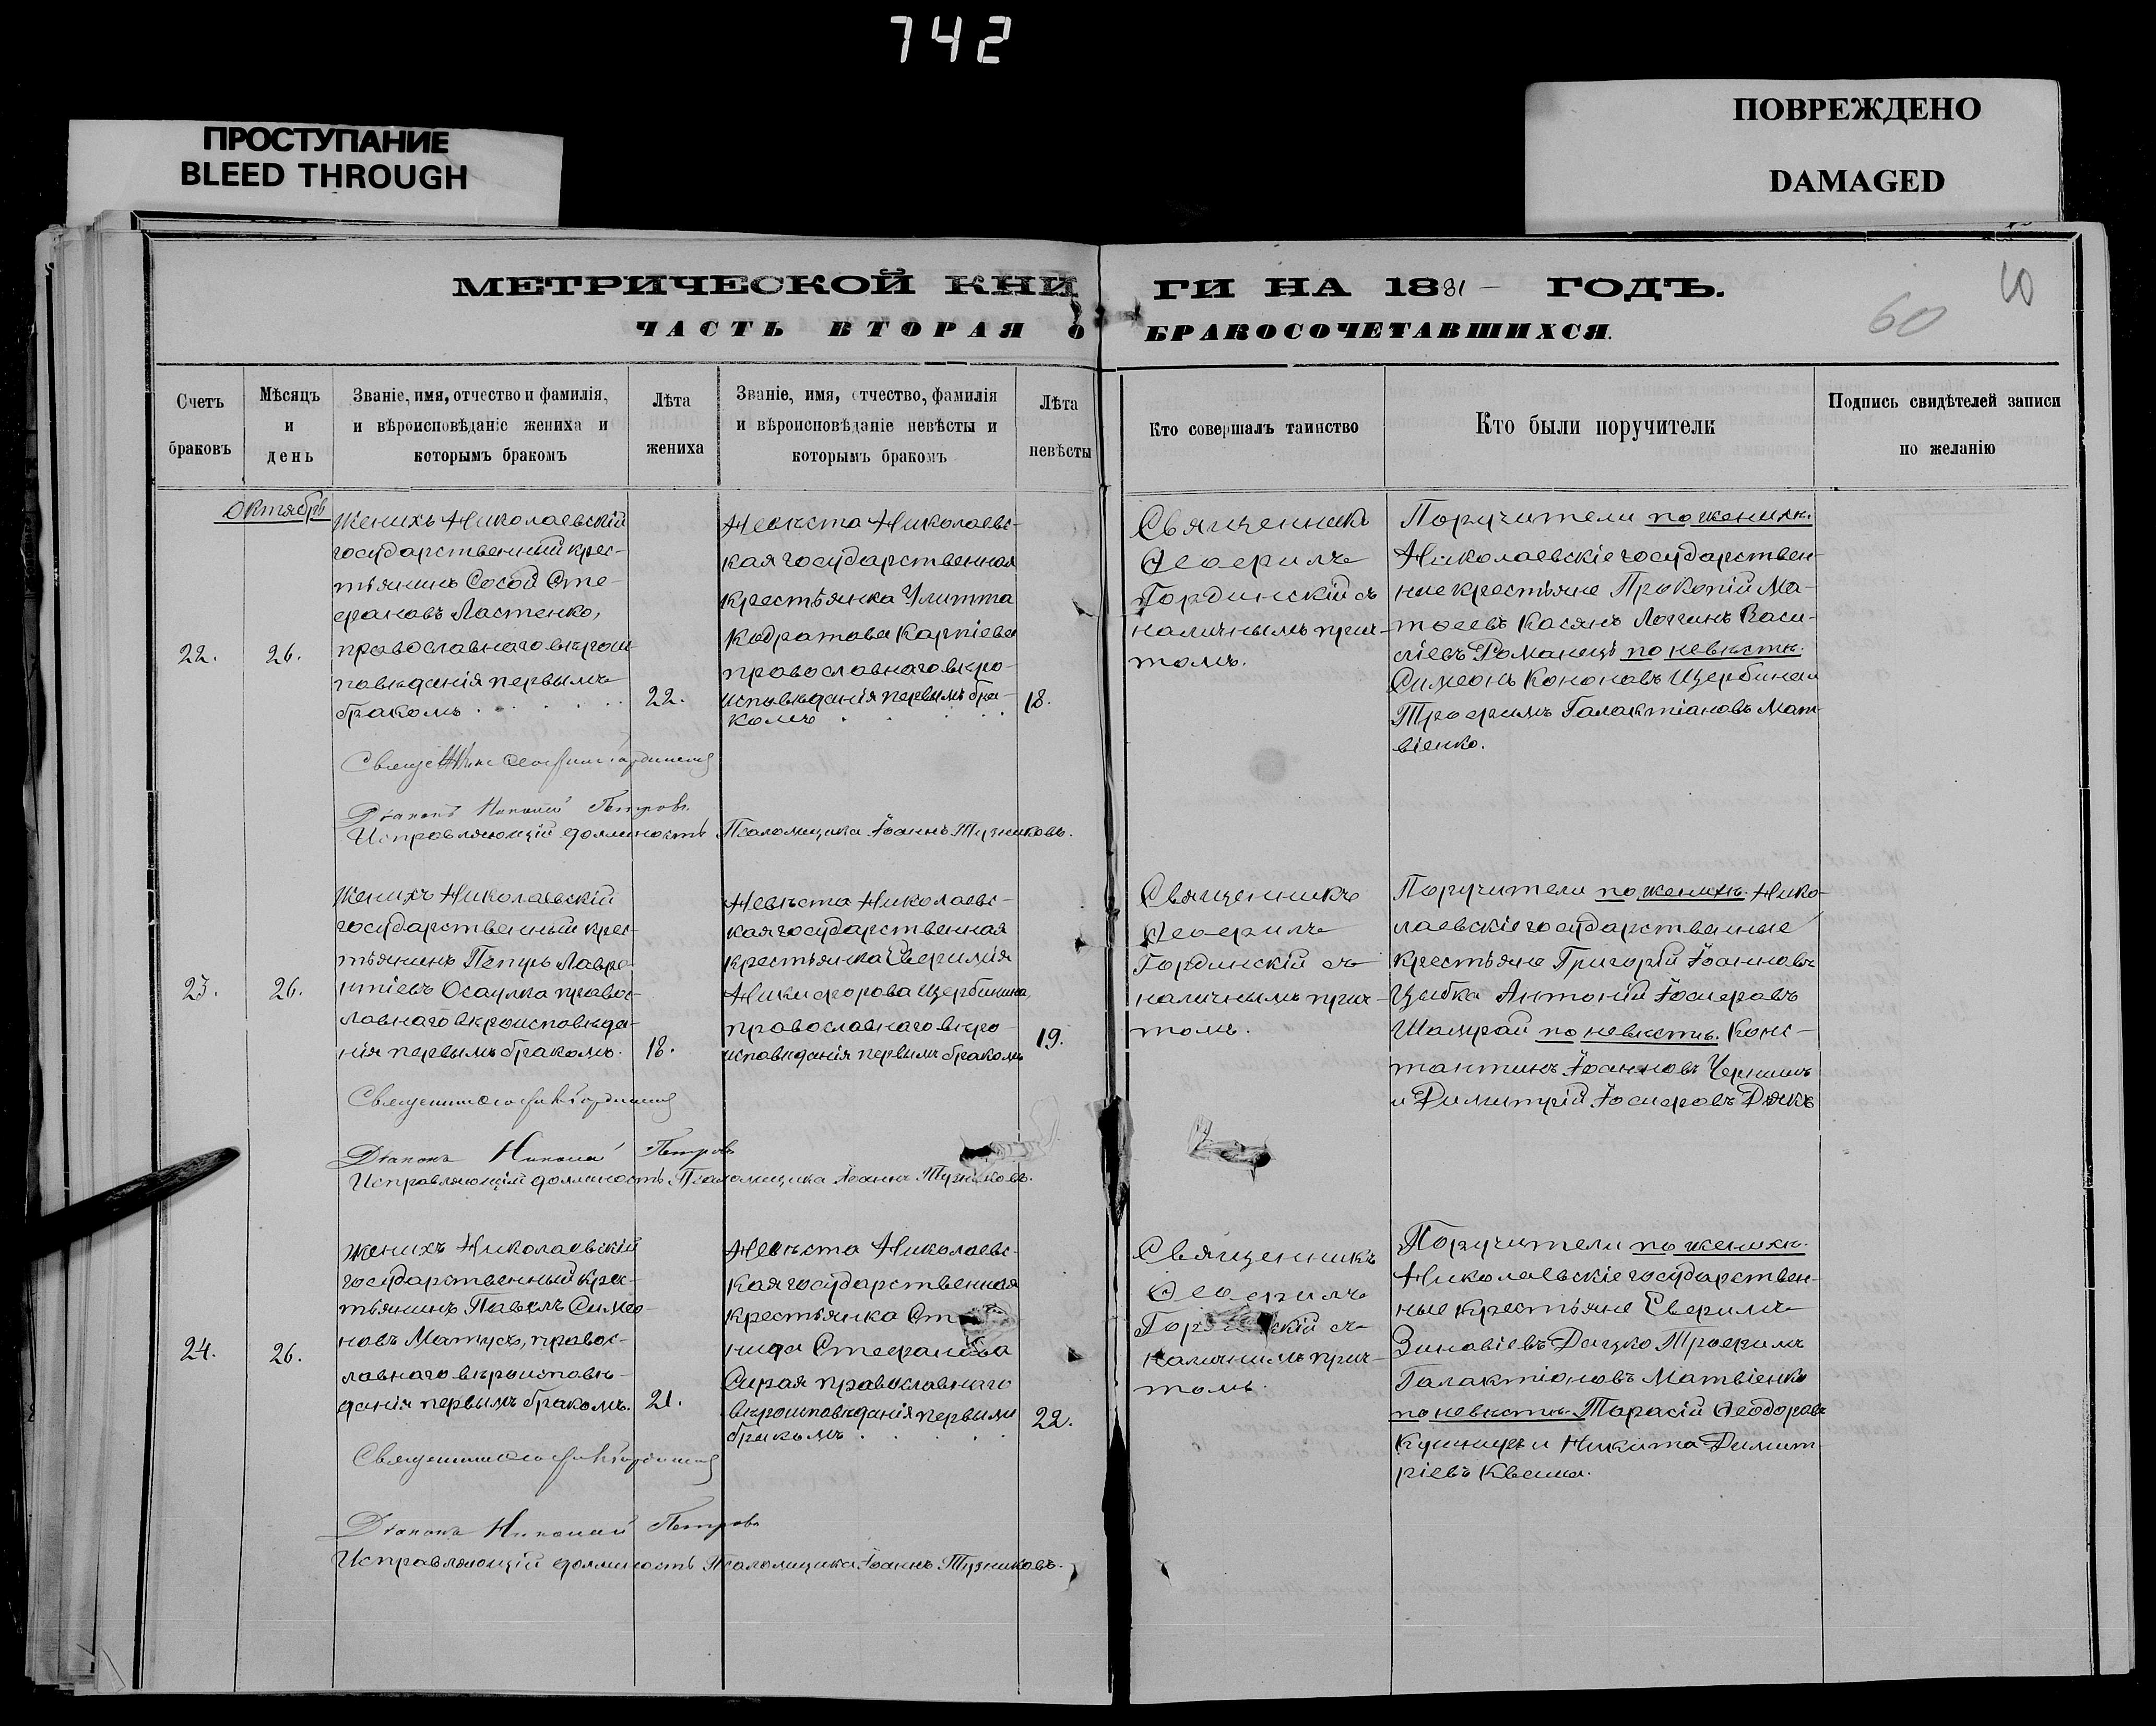 742
ПРОСТУПАНИЕ
BLEED THROUGH
ПОВРЕЖДЕНО
DAMAGED
МЕТРИЧЕСКОЙ КНИ
ГИ НА 1881 – ГОДЪ.
60
ЧАСТЬ ВТОРАЯ О
БРАКОСОЧЕТАВШИХСЯ.
Счетъ
браковъ
Мѣсяцъ
и
день
Званіе, имя, отчество и фамилія,
и вѣроисповѣданіе жениха и
которымъ бракомъ
Лѣта
жениха
Званіе, имя, отчество, фамилія
и вѣроисповѣданіе невѣсты и
которымъ бракомъ
Лѣта
невѣсты
Кто совершалъ таинство
Кто были поручители
Подпись свидѣтелей записи
по желанію
Октябрь
22.
26.
Женихъ Николаевскій
государственный крес-
тьянинъ Сосой Сте-
фановъ Ластенко,
православнаго вѣроис-
повѣданія первымъ
бракомъ
22.
Невѣста Николаевс-
кая государственная
крестьянка Улитта
Кодратова Карпіева
православнаго вѣро-
исповѣданія первымъ бра-
комъ
18.
Священникъ
Ѳеофилъ
Гординскій съ
наличнымъ прич-
томъ.
Поручители по женихѣ.
Николаевскіе государствен-
ные крестьяне Прокопій Ма-
тѳеевъ Касянъ Логинъ Васи-
ліевъ Романецъ по невѣстѣ.
Симеонъ Кононовъ Щербина и
Трофимъ Галактіановъ Мат-
віенко.
Священникъ Ѳеофилъ Гординскій
Діаконъ Николай Петровъ
Исправляющій должность Псаломщика Іоаннъ Тузниковъ.
23.
26.
Женихъ Николаевскій
государственный крес-
тьянинъ Петръ Лавре
нтіевъ Осаулка правос-
лавнаго вѣроисповѣда-
нія первымъ бракомъ.
18.
Невѣста Николаевс-
кая государственная
крестьянка Евфимія
Никифорова Щербинина,
православнаго вѣро-
исповѣданія первымъ бракомъ
19.
Священникъ
Ѳеофилъ
Гординскій съ
наличнымъ прич-
томъ.
Поручители по женихѣ. Нико-
лаевскіе государственные
крестьяне Григорій Іоанновъ
Цыбка Антоній Іосифовъ
Шамрай по невѣстѣ. Конс-
тантинъ Іоанновъ
и Димитрій Іосифовъ Дякъ
Священникъ Ѳеофилъ Гординскій
Діаконъ Николай Петровъ
Исправляющій должность Псаломщика Іоаннъ Тузниковъ.
24.
26.
Женихъ Николаевскій
государственный крес-
тьянинъ Павелъ Симео-
новъ Матусъ, правос-
лавнаго вѣроисповѣ-
данія первымъ бракомъ.
21.
Невѣста Николаевс-
кая государственная
крестьянка Ст
нида Стефанова
Сирая православнаго
вѣроисповѣданія первымъ
бракомъ
22.
Священникъ
Ѳеофилъ
Гор скій съ
наличнымъ прич-
томъ.
Поручители по женихѣ.
Николаевскіе государствен-
ные крестьяне Евфимъ
Зиновіевъ Дацко Трофимъ
Галактіоновъ Матвіенко
по невѣстѣ. Тарасій Ѳеодоровъ
Кушниръ и Никита Димит
ріевъ Квеша.
Священникъ Ѳеофилъ Гординскій
Діаконъ Николай Петровъ
Исправляющій должность Псаломщика Іоаннъ Тузниковъ.